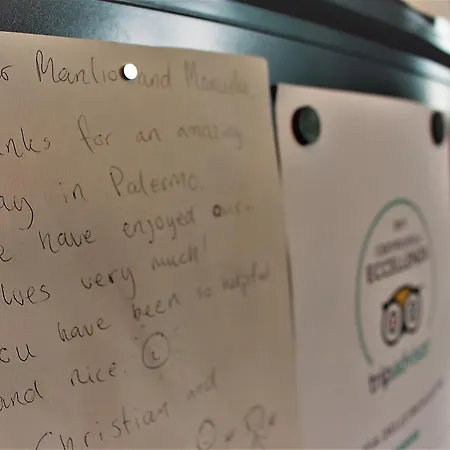 Manlio and Manuela
anks for an amazing
ay in Palermo.
e have enjoyed our-
lves very much!
ou have been so helpful
and nice.
Christian and
ECCELLENZA
tripadvisor